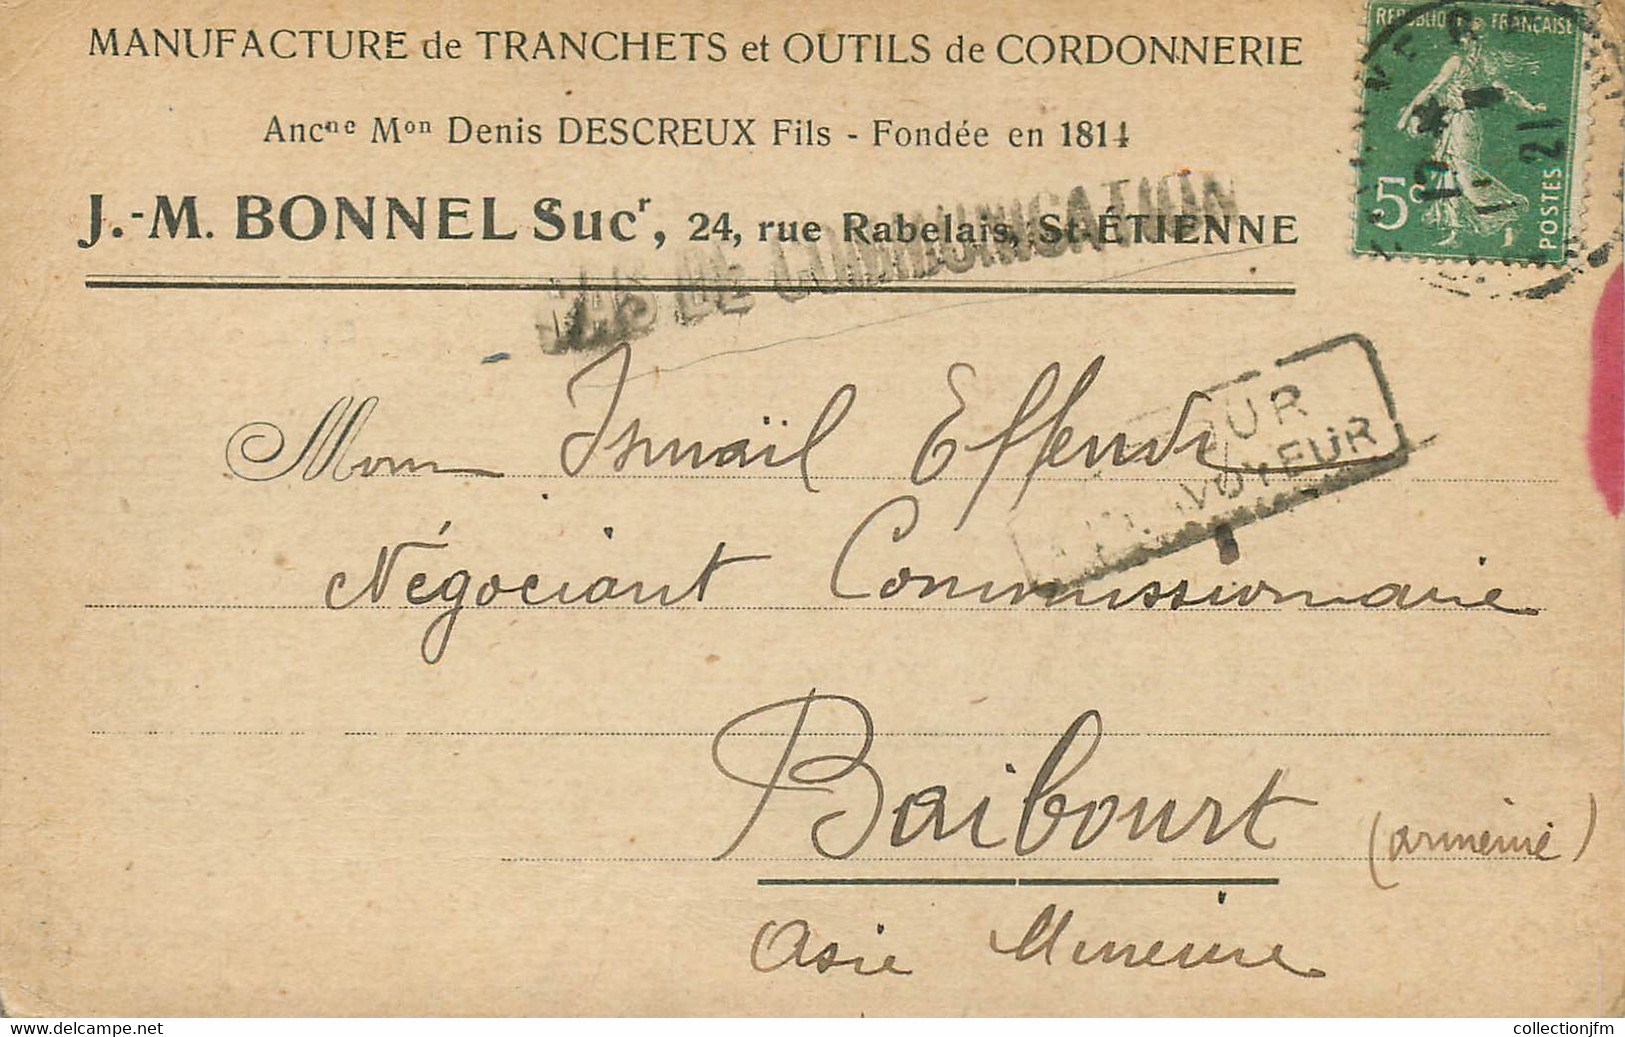 MANUFACTURE de TRANCHETS et OUTILS de CORDONNERIE
Ancne Mon Denis DESCREUX Fils - Fondée en 1814
J.-M. BONNEL Sucr, 24, rue Rabelais, St-ÉTIENNE
REPUBLIQUE FRANÇAISE
5c
POSTES
12 *
21
PAS DE COMMUNICATION
Mon Ismaïl Effendi
Négociant Commissionnaire
Baibourt (arménie)
Asie Mineure
collectionjfm